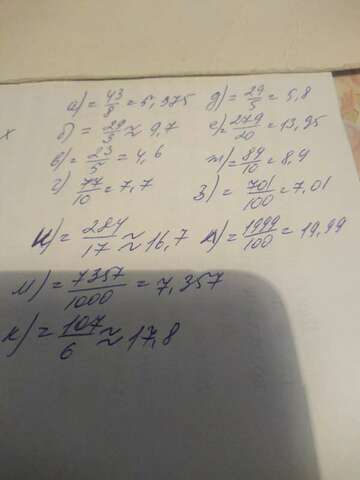 а) = 43/8 = 5,375 д) = 29/5 = 5,8
б) = 29/3 ≈ 9,7 е) = 279/20 = 13,95
в) = 23/5 = 4,6 ж) = 89/10 = 8,9
г) 77/10 = 7,7 з) = 701/100 = 7,01
и) = 284/17 ≈ 16,7 л) = 1999/100 = 19,99
м) = 7357/1000 = 7,357
к) = 107/6 ≈ 17,8